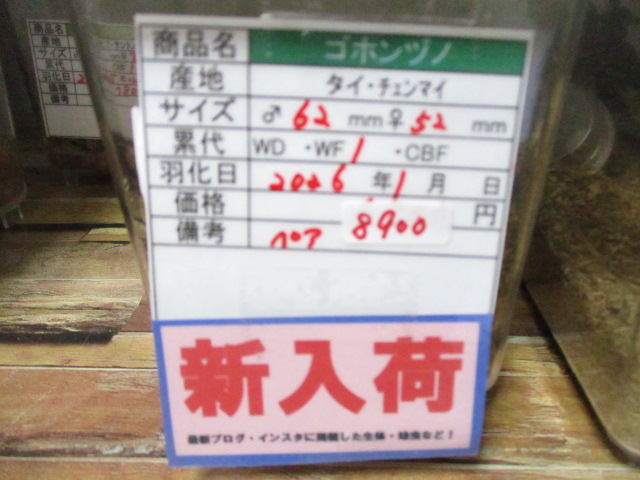 商品名 ゴホンヅノ
産地 タイ・チェンマイ
サイズ ♂ 62 mm ♀ 52 mm
累代 WD ・WF1 ・CBF
羽化日 2026 年 1 月 日
価格 8900 円
備考 ペア
新入荷
最新ブログ・インスタに掲載した生体・幼虫など！
商品名
産地
サイズ
累代
羽化日
価格
備考